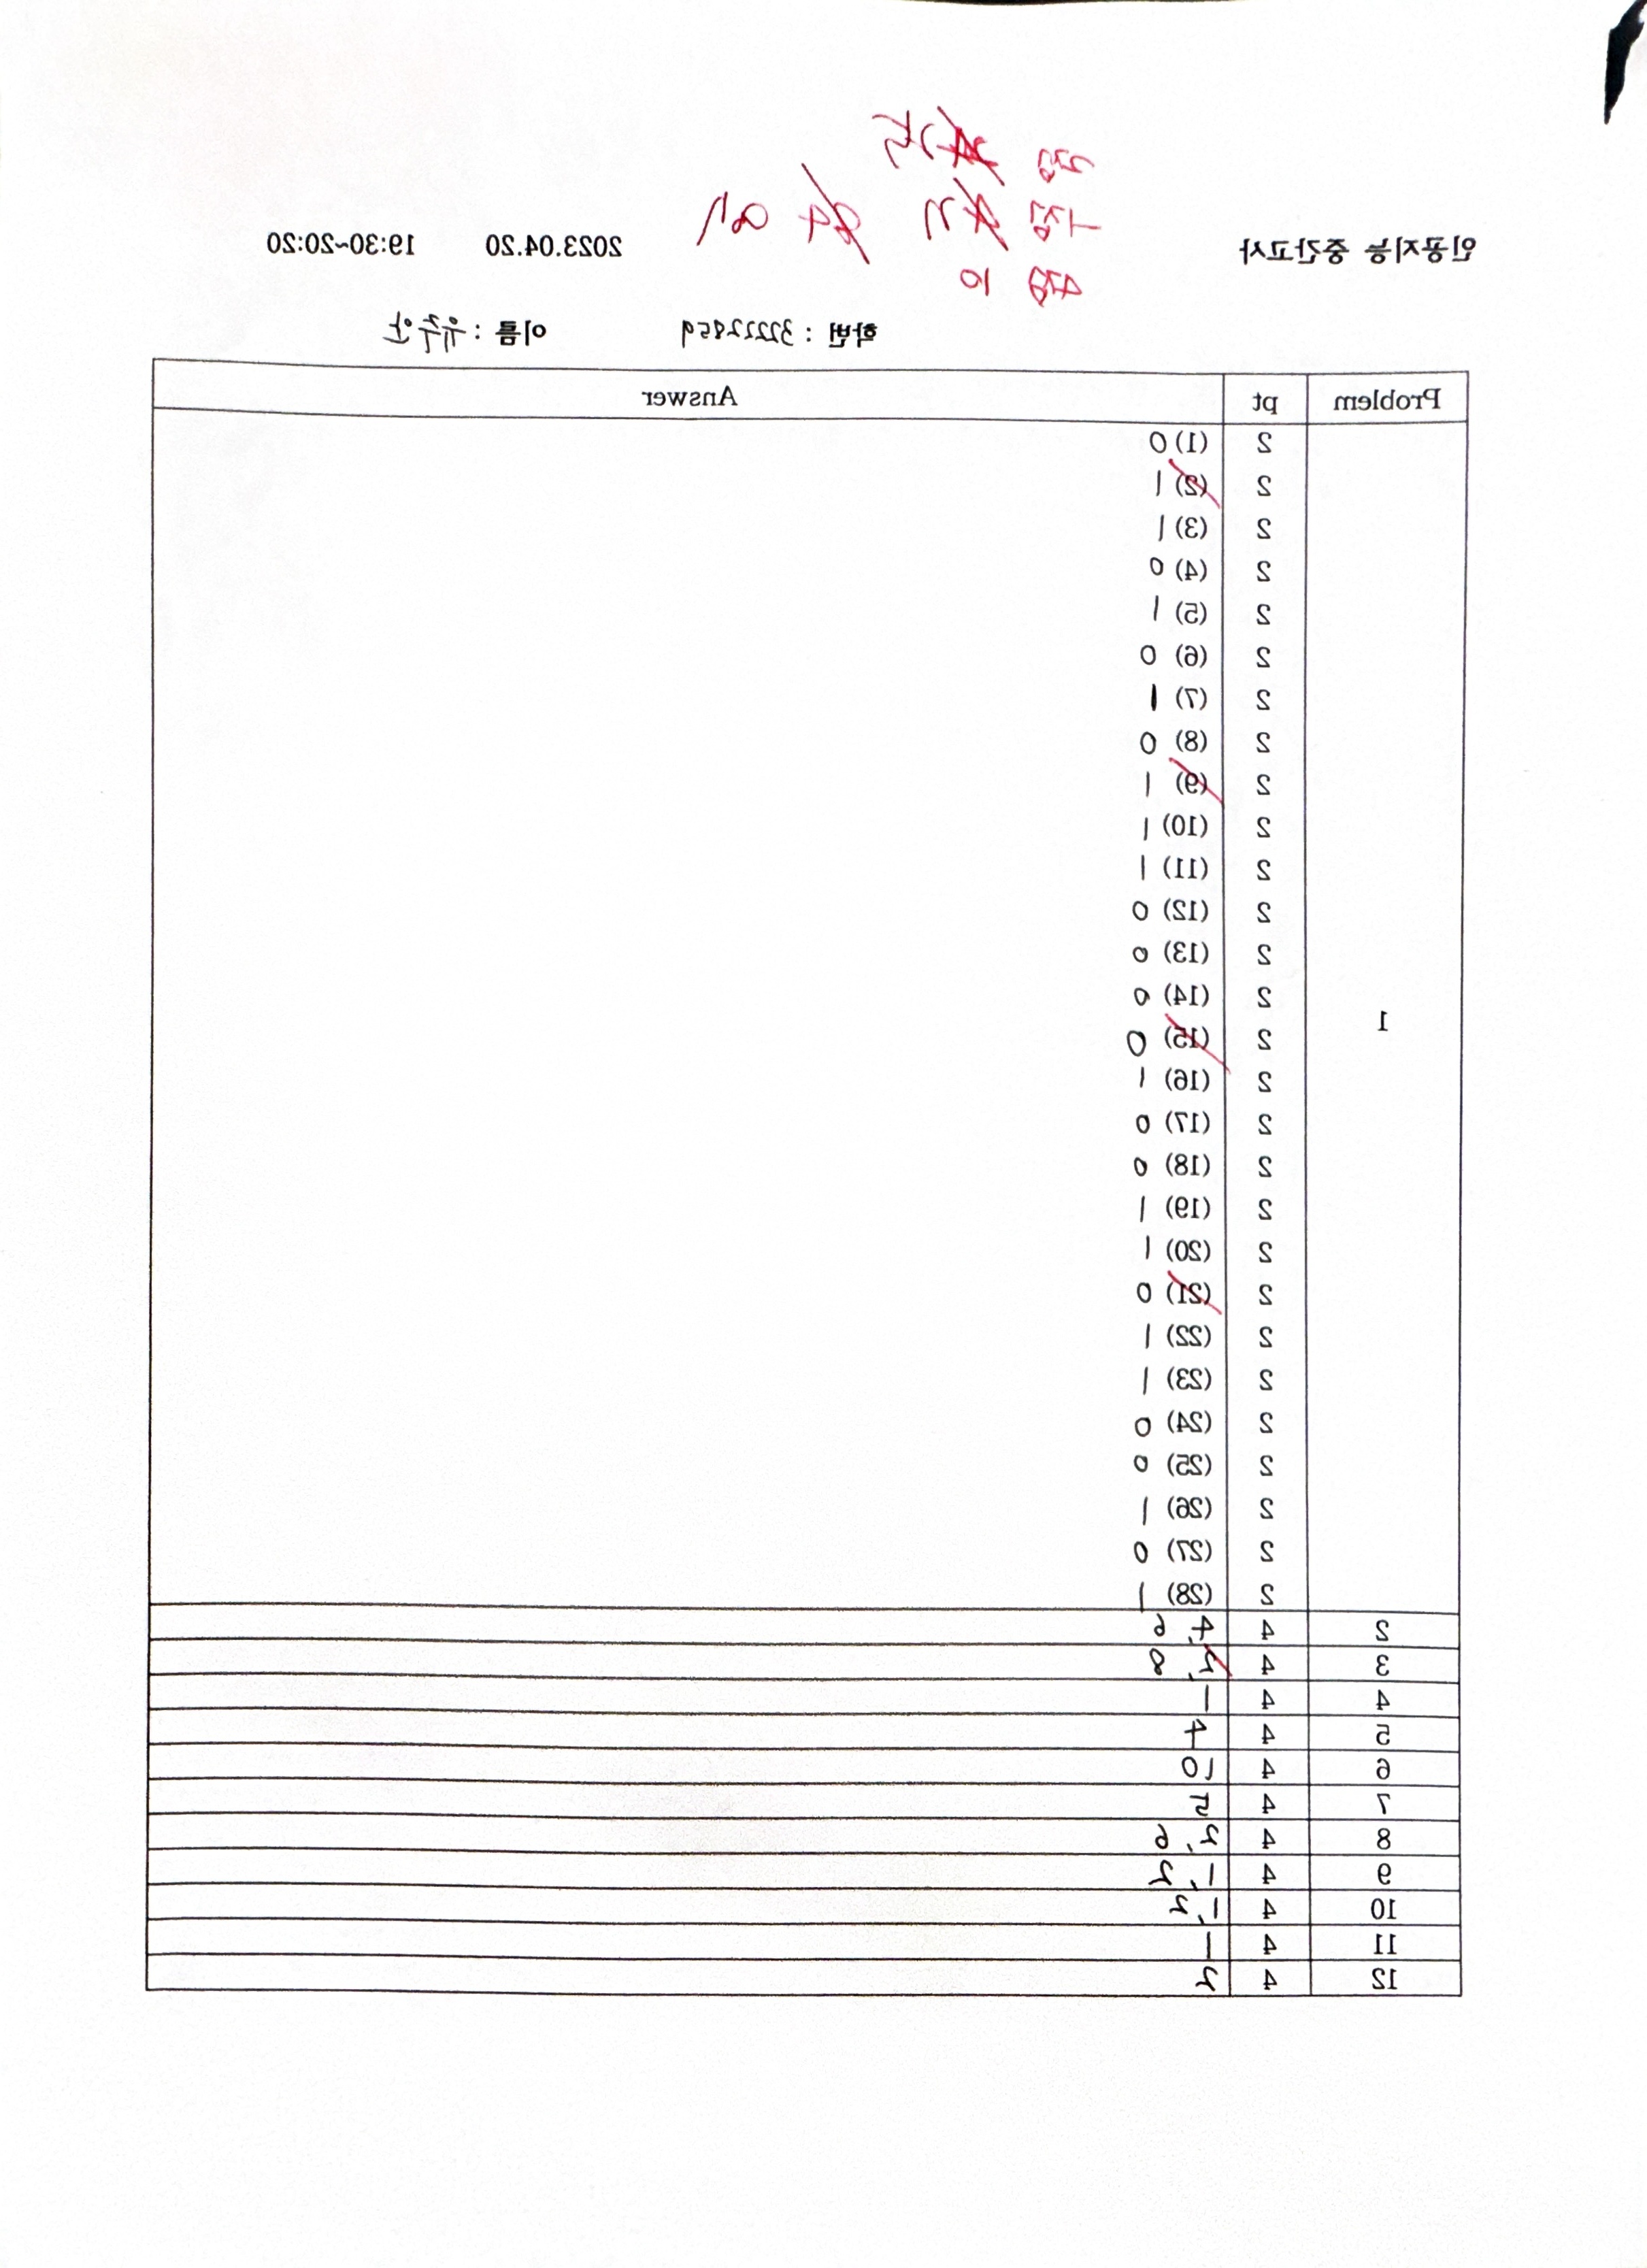 인공지능 중간고사 2023.04.20 19:30~20:20
4점 10
학번 : 32222859 이름 : 유주안
Problem pt Answer
1
2 (1) 0
2 (2) 1
2 (3) 1
2 (4) 0
2 (5) 1
2 (6) 0
2 (7) 1
2 (8) 0
2 (9) 1
2 (10) 1
2 (11) 1
2 (12) 0
2 (13) 0
2 (14) 0
2 (15) 0
2 (16) 1
2 (17) 0
2 (18) 0
2 (19) 1
2 (20) 1
2 (21) 0
2 (22) 1
2 (23) 1
2 (24) 0
2 (25) 0
2 (26) 1
2 (27) 0
2 (28) 1
2 4 4, 6
3 4 8
4 4
5 4 4
6 4 10
7 4
8 4 6
9 4
10 4
11 4
12 4